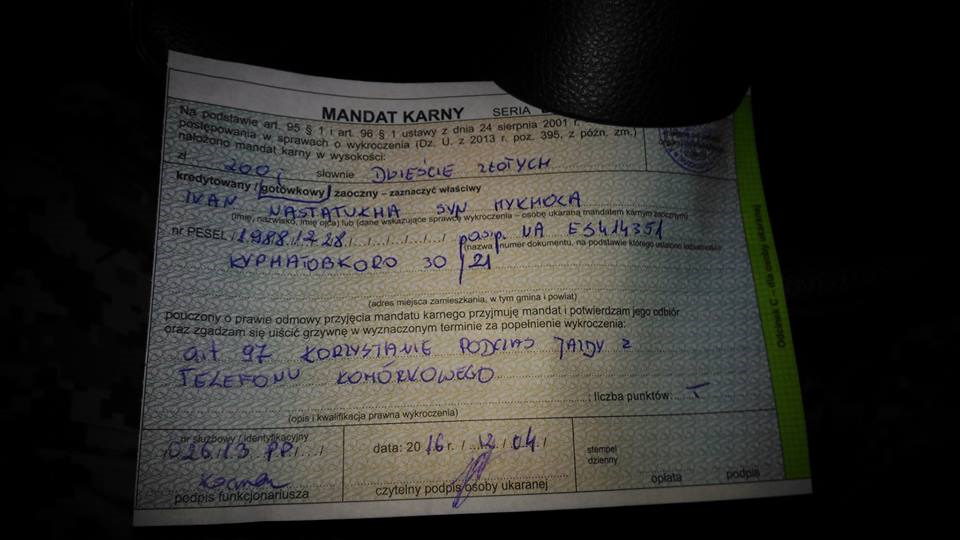 MANDAT KARNY SERIA
Na podstawie art. 95 § 1 i art. 96 § 1 ustawy z dnia 24 sierpnia 2001 r.
postępowania w sprawach o wykroczenia (Dz. U. z 2013 r. poz. 395, z późn. zm.)
nałożono mandat karny w wysokości:
zł 200,- słownie DWIEŚCIE ZŁOTYCH
kredytowany / gotówkowy / zaoczny – zaznaczyć właściwy
IVAN NASTATUKHA SYN MYKHOLA
(imię, nazwisko, imię ojca) lub (dane wskazujące sprawcę wykroczenia – osobę ukaraną mandatem karnym zaocznym)
nr PESEL 1988.1728 pasp. UA ES414351
(nazwa i numer dokumentu, na podstawie którego ustalono tożsamość)
KYPHATOBKORO 30/21
(adres miejsca zamieszkania, w tym gmina i powiat)
pouczony o prawie odmowy przyjęcia mandatu karnego przyjmuję mandat i potwierdzam jego odbiór
oraz zgadzam się uiścić grzywnę w wyznaczonym terminie za popełnienie wykroczenia:
art 97 KORZYSTANIE PODCZAS JAZDY Z
TELEFONU KOMÓRKOWEGO
; liczba punktów:
(opis i kwalifikacja prawna wykroczenia)
nr służbowy / identyfikacyjny
02613 PP
podpis funkcjonariusza
data: 2016 r. / 12 / 04 /
czytelny podpis osoby ukaranej
stempel
dzienny
opłata podpis
Odcinek C – dla osoby ukaranej